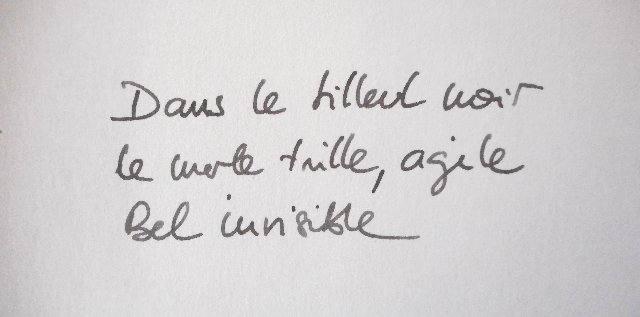 Dans le tilleul noir
le merle trille, agile
Bel invisible